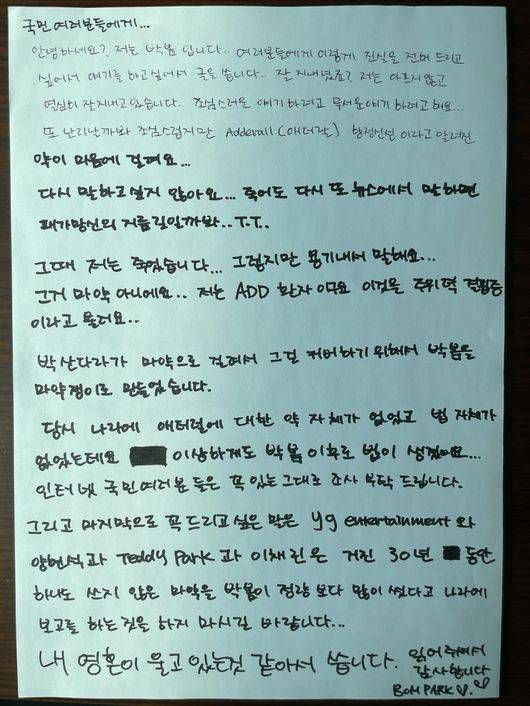 국민 여러분들에게...
안녕하세요? 저는 박봄 입니다.. 여러분들에게 이렇게 진실을 전해 드리고
싶어서 얘기를 하고 싶어서 글을 씁니다.. 잘 지내셨죠? 저는 아프지 않고
열심히 잘 지내고 있습니다. 조심스러운 얘기 하려고 무서운 얘기 하려고 해요...
또 난리 난까봐 조심스럽지만 Adderall (애더랄) 향정신성 이라고 알려진
약이 마음에 걸려요...
다시 말하고 싶지 않아요... 죽어도 다시 또 뉴스에서 말하면
패가망신의 지름길일까봐..T.T..
그때 저는 죽었습니다... 그렇지만 용기내서 말해요...
그거 마약 아니에요.. 저는 ADD 환자 이구요 이것을 주위력 결핍증
이라고 불러요..
박산다라가 마약으로 걸려서 그걸 커버하기 위해서 박봄을
마약쟁이로 만들었습니다.
당시 나라에 애더럴에 대한 약 자체가 없었고 법 자체가
없었는데요 이상하게도 박봄 이후로 법이 생겼어요...
인터넷 국민여러분 들은 꼭 있는 그대로 조사 부탁 드립니다.
그리고 마지막으로 꼭 드리고 싶은 말은 yg entertainment 와
양현석과 Teddy Park 과 이채린은 거진 30년 동안
하나도 쓰지 않은 마약을 박봄이 정량 보다 많이 썼다고 나라에
보고를 하는 것을 하지 마시길 바랍니다...
내 영혼이 울고 있는것 같아서 씁니다. 읽어주셔서
감사합니다
BOM PARK ♡. ♡